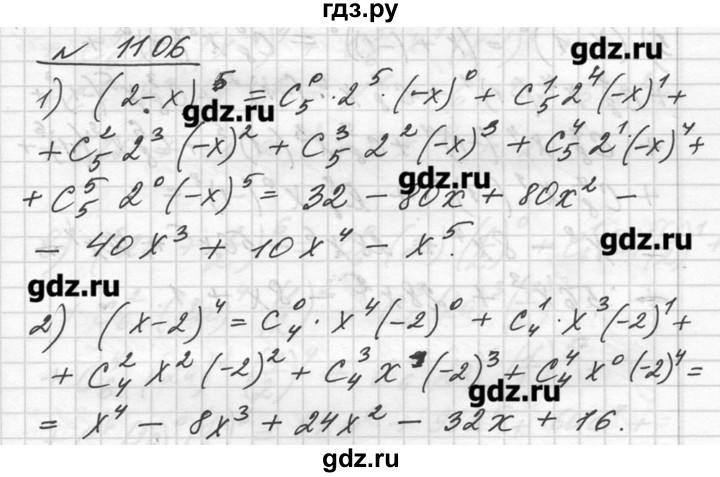 гдз.ру
№ 1106
gdz.ru
1) (2-x)^5 = C_5^0 · 2^5 · (-x)^0 + C_5^1 2^4 (-x)^1 +
gdz.ru
+ C_5^2 2^3 (-x)^2 + C_5^3 2^2 (-x)^3 + C_5^4 2^1 · (-x)^4 +
gdz.ru
+ C_5^5 2^0 (-x)^5 = 32 - 80x + 80x^2 -
- 40x^3 + 10x^4 - x^5.
gdz.ru
gdz.ru
2) (x-2)^4 = C_4^0 · x^4 (-2)^0 + C_4^1 · x^3 (-2)^1 +
+ C_4^2 x^2 (-2)^2 + C_4^3 x^1 (-2)^3 + C_4^4 x^0 (-2)^4 =
gdz.ru
= x^4 - 8x^3 + 24x^2 - 32x + 16.
gdz.ru